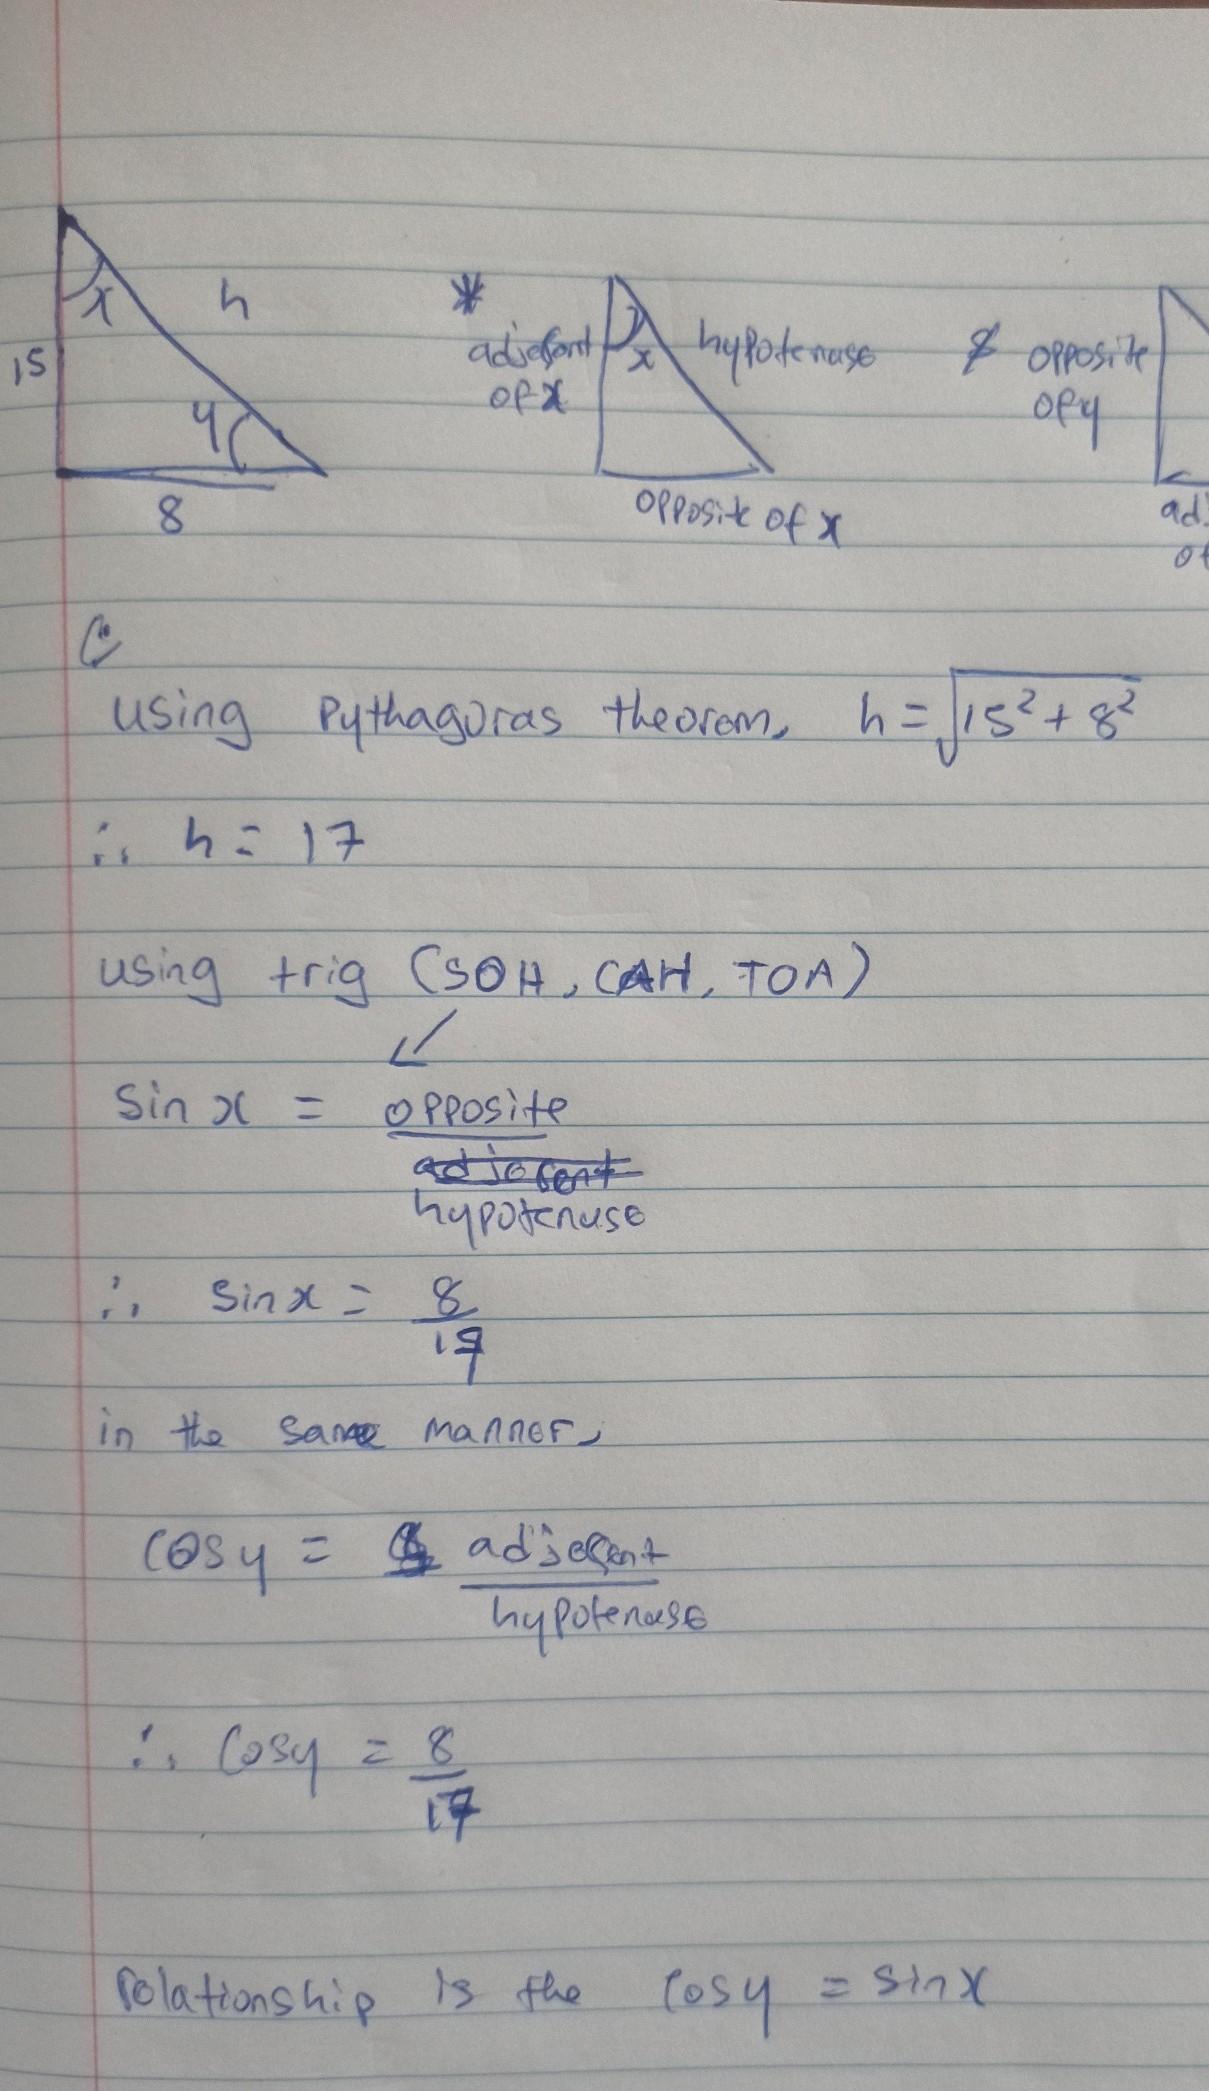 x
h
15
y
8
*
adjacent
of x
x
hypotenuse
opposite of x
opposite
of y
ad
of
using Pythagoras theorem, h = √15² + 8²
∴ h = 17
using trig (SOH, CAH, TOA)
sin x = opposite
hypotenuse
∴ sin x = 8
17
in the same manner,
cos y = adjacent
hypotenuse
∴ cos y = 8
17
relationship is the cos y = sin x